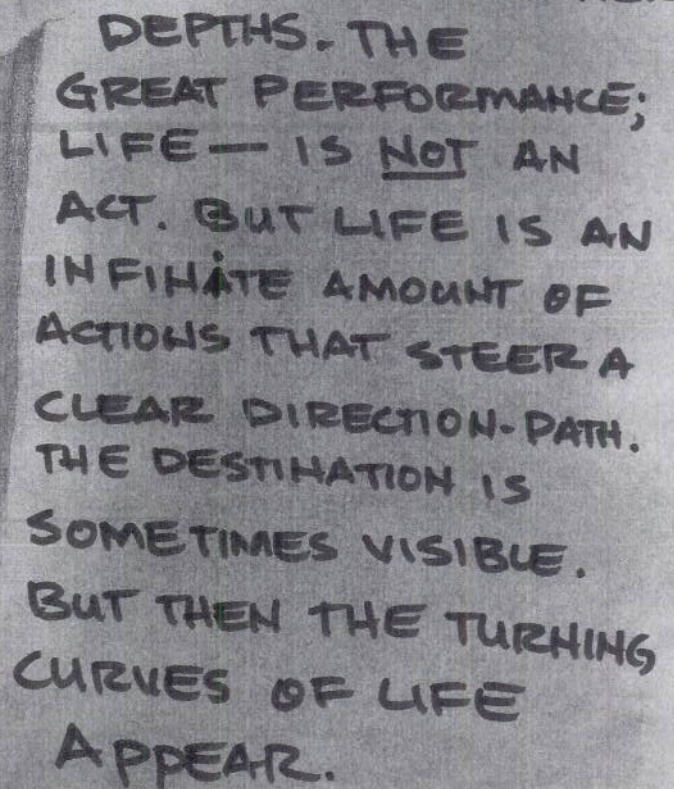 DEPTHS. THE
GREAT PERFORMANCE;
LIFE — IS NOT AN
ACT. BUT LIFE IS AN
INFINITE AMOUNT OF
ACTIONS THAT STEER A
CLEAR DIRECTION-PATH.
THE DESTINATION IS
SOMETIMES VISIBLE.
BUT THEN THE TURNING
CURVES OF LIFE
APPEAR.